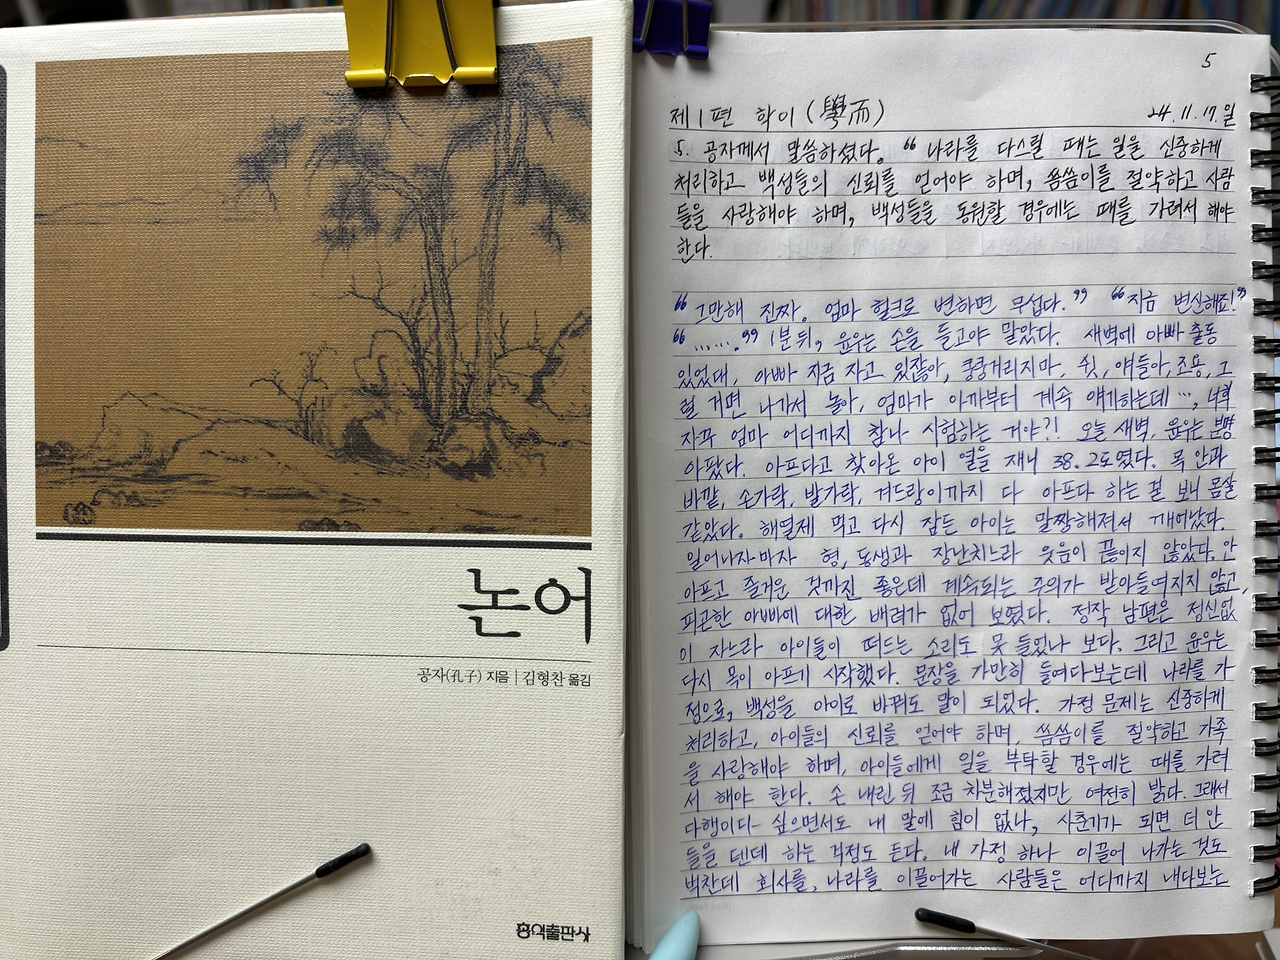 논어
공자(孔子) 지음 | 김형찬 옮김
홍익출판사
5
제1편 학이(學而) 24.11.17.일
5. 공자께서 말씀하셨다. “나라를 다스릴 때는 일을 신중하게
처리하고 백성들의 신뢰를 얻어야 하며, 씀씀이를 절약하고 사람
들을 사랑해야 하며, 백성들을 동원할 경우에는 때를 가려서 해야
한다.
“그만해 진짜. 엄마 헐크로 변하면 무섭다.” “지금 변신해죠!”
“…….” 1분 뒤, 윤우는 손을 들고야 말았다. 새벽에 아빠 출동
있었대, 아빠 지금 자고 있잖아, 쿵쿵거리지마, 쉿, 얘들아, 조용, 그
럴 거면 나가서 놀아, 엄마가 아까부터 계속 얘기하는데…, 너희
자꾸 엄마 어디까지 참나 시험하는 거야?! 오늘 새벽, 윤우는 분명
아팠다. 아프다고 찾아온 아이 열을 재니 38.2도였다. 목 안과
바깥, 손가락, 발가락, 겨드랑이까지 다 아프다 하는 폼 보니 몸살
같았다. 해열제 먹고 다시 잠든 아이는 말짱해져서 깨어났다.
일어나자마자 형, 동생과 장난치느라 웃음이 끊이지 않았다. 안
아프고 즐거운 것까진 좋은데 계속되는 주의가 받아들여지지 않고,
피곤한 아빠에 대한 배려가 없어 보였다. 정작 남편은 정신없
이 자느라 아이들이 떠드는 소리도 못 들었나 보다. 그리고 윤우는
다시 목이 아프기 시작했다. 문장을 가만히 들여다보는데 나라를 가
정으로, 백성을 아이로 바꿔도 말이 되었다. 가정 문제는 신중하게
처리하고, 아이들의 신뢰를 얻어야 하며, 씀씀이를 절약하고 가족
을 사랑해야 하며, 아이들에게 일을 부탁할 경우에는 때를 가려
서 해야 한다. 손 내린 뒤 조금 차분해졌지만 여전히 밝다. 그래서
다행이다 싶으면서도 내 말에 힘이 없나, 사춘기가 되면 더 안
들을 텐데 하는 걱정도 든다. 내 가정 하나 이끌어 나가는 것도
벅찬데 회사를, 나라를 이끌어가는 사람들은 어디까지 내다보는